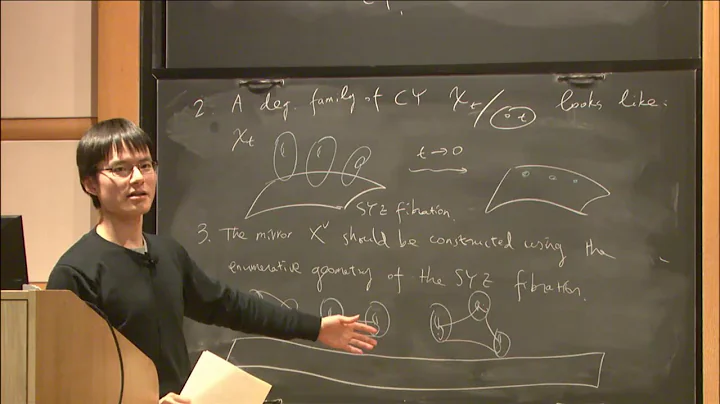 2. A deg. family of CY X_t/ looks like:
X_t
t → 0
SYZ fibration.
3. The mirror X^∨ should be constructed using the
enumerative geometry of the SYZ fibration.